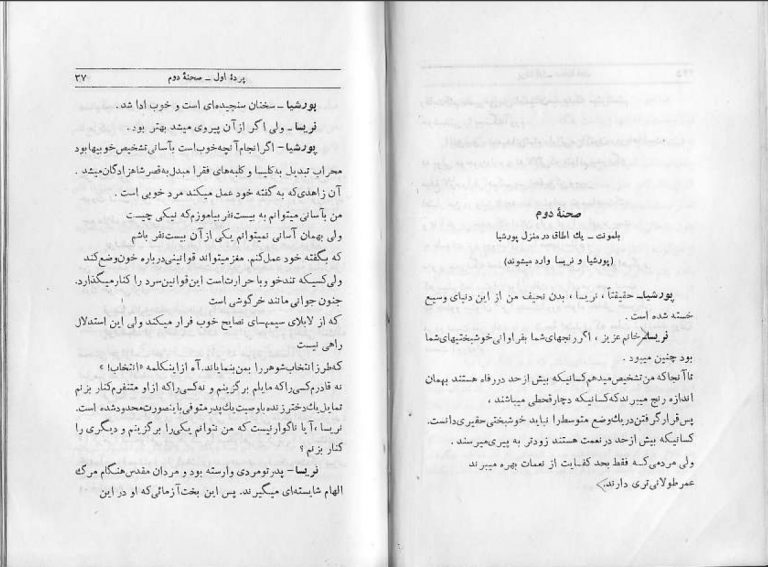 صحنهٔ دوم
بلمونت ـ یك اطاق در منزل پورشیا
(پورشیا و نریسا وارد میشوند)
پورشیاـ حقیقتاً ، نریسا ، بدن نحیف من از این دنیای وسیع
خسته شده است .
نریساـ خانم عزیز ، اگر رنجهای شما بفراوانی خوشبختیهای شما
بود چنین میبود .
تا آنجا که من تشخیص میدهم کسانیکه بیش از حد در رفاه هستند بهمان
اندازه رنج میبرند که کسانیکه دچار قحطی میباشند ،
پس قرار گرفتن در یك وضع متوسط را نباید خوشبختی حقیری دانست.
کسانیکه بیش از حد در نعمت هستند زودتر به پیری میرسند .
ولی مردمی که فقط بحد کفایت از نعمات بهره میبرند
عمر طولانی‌تری دارند.
پردهٔ اول ـ صحنهٔ دوم
۳۷
پورشیا ـ سخنان سنجیده‌ای است و خوب ادا شد .
نریسا ـ ولی اگر از آن پیروی میشد بهتر بود .
پورشیا ـ اگر انجام آنچه خوب است بآسانی تشخیص خوبیها بود
محراب تبدیل به کلیسا و کلبه‌های فقرا مبدل بقصر شاهزادگان میشد .
آن زاهدی که به گفته خود عمل میکند مرد خوبی است .
من بآسانی میتوانم به بیست نفر بیاموزم که نیکی چیست
ولی بهمان آسانی نمیتوانم یکی از آن بیست نفر باشم
که بگفته خود عمل کنم. مغز میتواند قوانینی درباره خون وضع کند
ولی کسیکه تندخو و با حرارت است این قوانین سرد را کنار میگذارد.
جنون جوانی مانند خرگوشی است
که از لابلای سیمهای نصایح خوب فرار میکند ولی این استدلال
راهی نیست
که طرز انتخاب شوهر را بمن بنمایاند. آه از اینکلمه «انتخاب! »
نه قادرم کسی را که مایلم برگزینم و نه کسی را که از او متنفرم کنار بزنم
تمایل یك دختر زنده با وصیت یك پدر متوفی باینصورت محدود شده است.
نریسا ، آیا ناگوار نیست که من نتوانم یکی را برگزینم و دیگری را
کنار بزنم ؟
نریسا ـ پدر تو مردی وارسته بود و مردان مقدس هنگام مرگ
الهام شایسته‌ای میگیرند. پس این بخت‌آزمائی که او در این